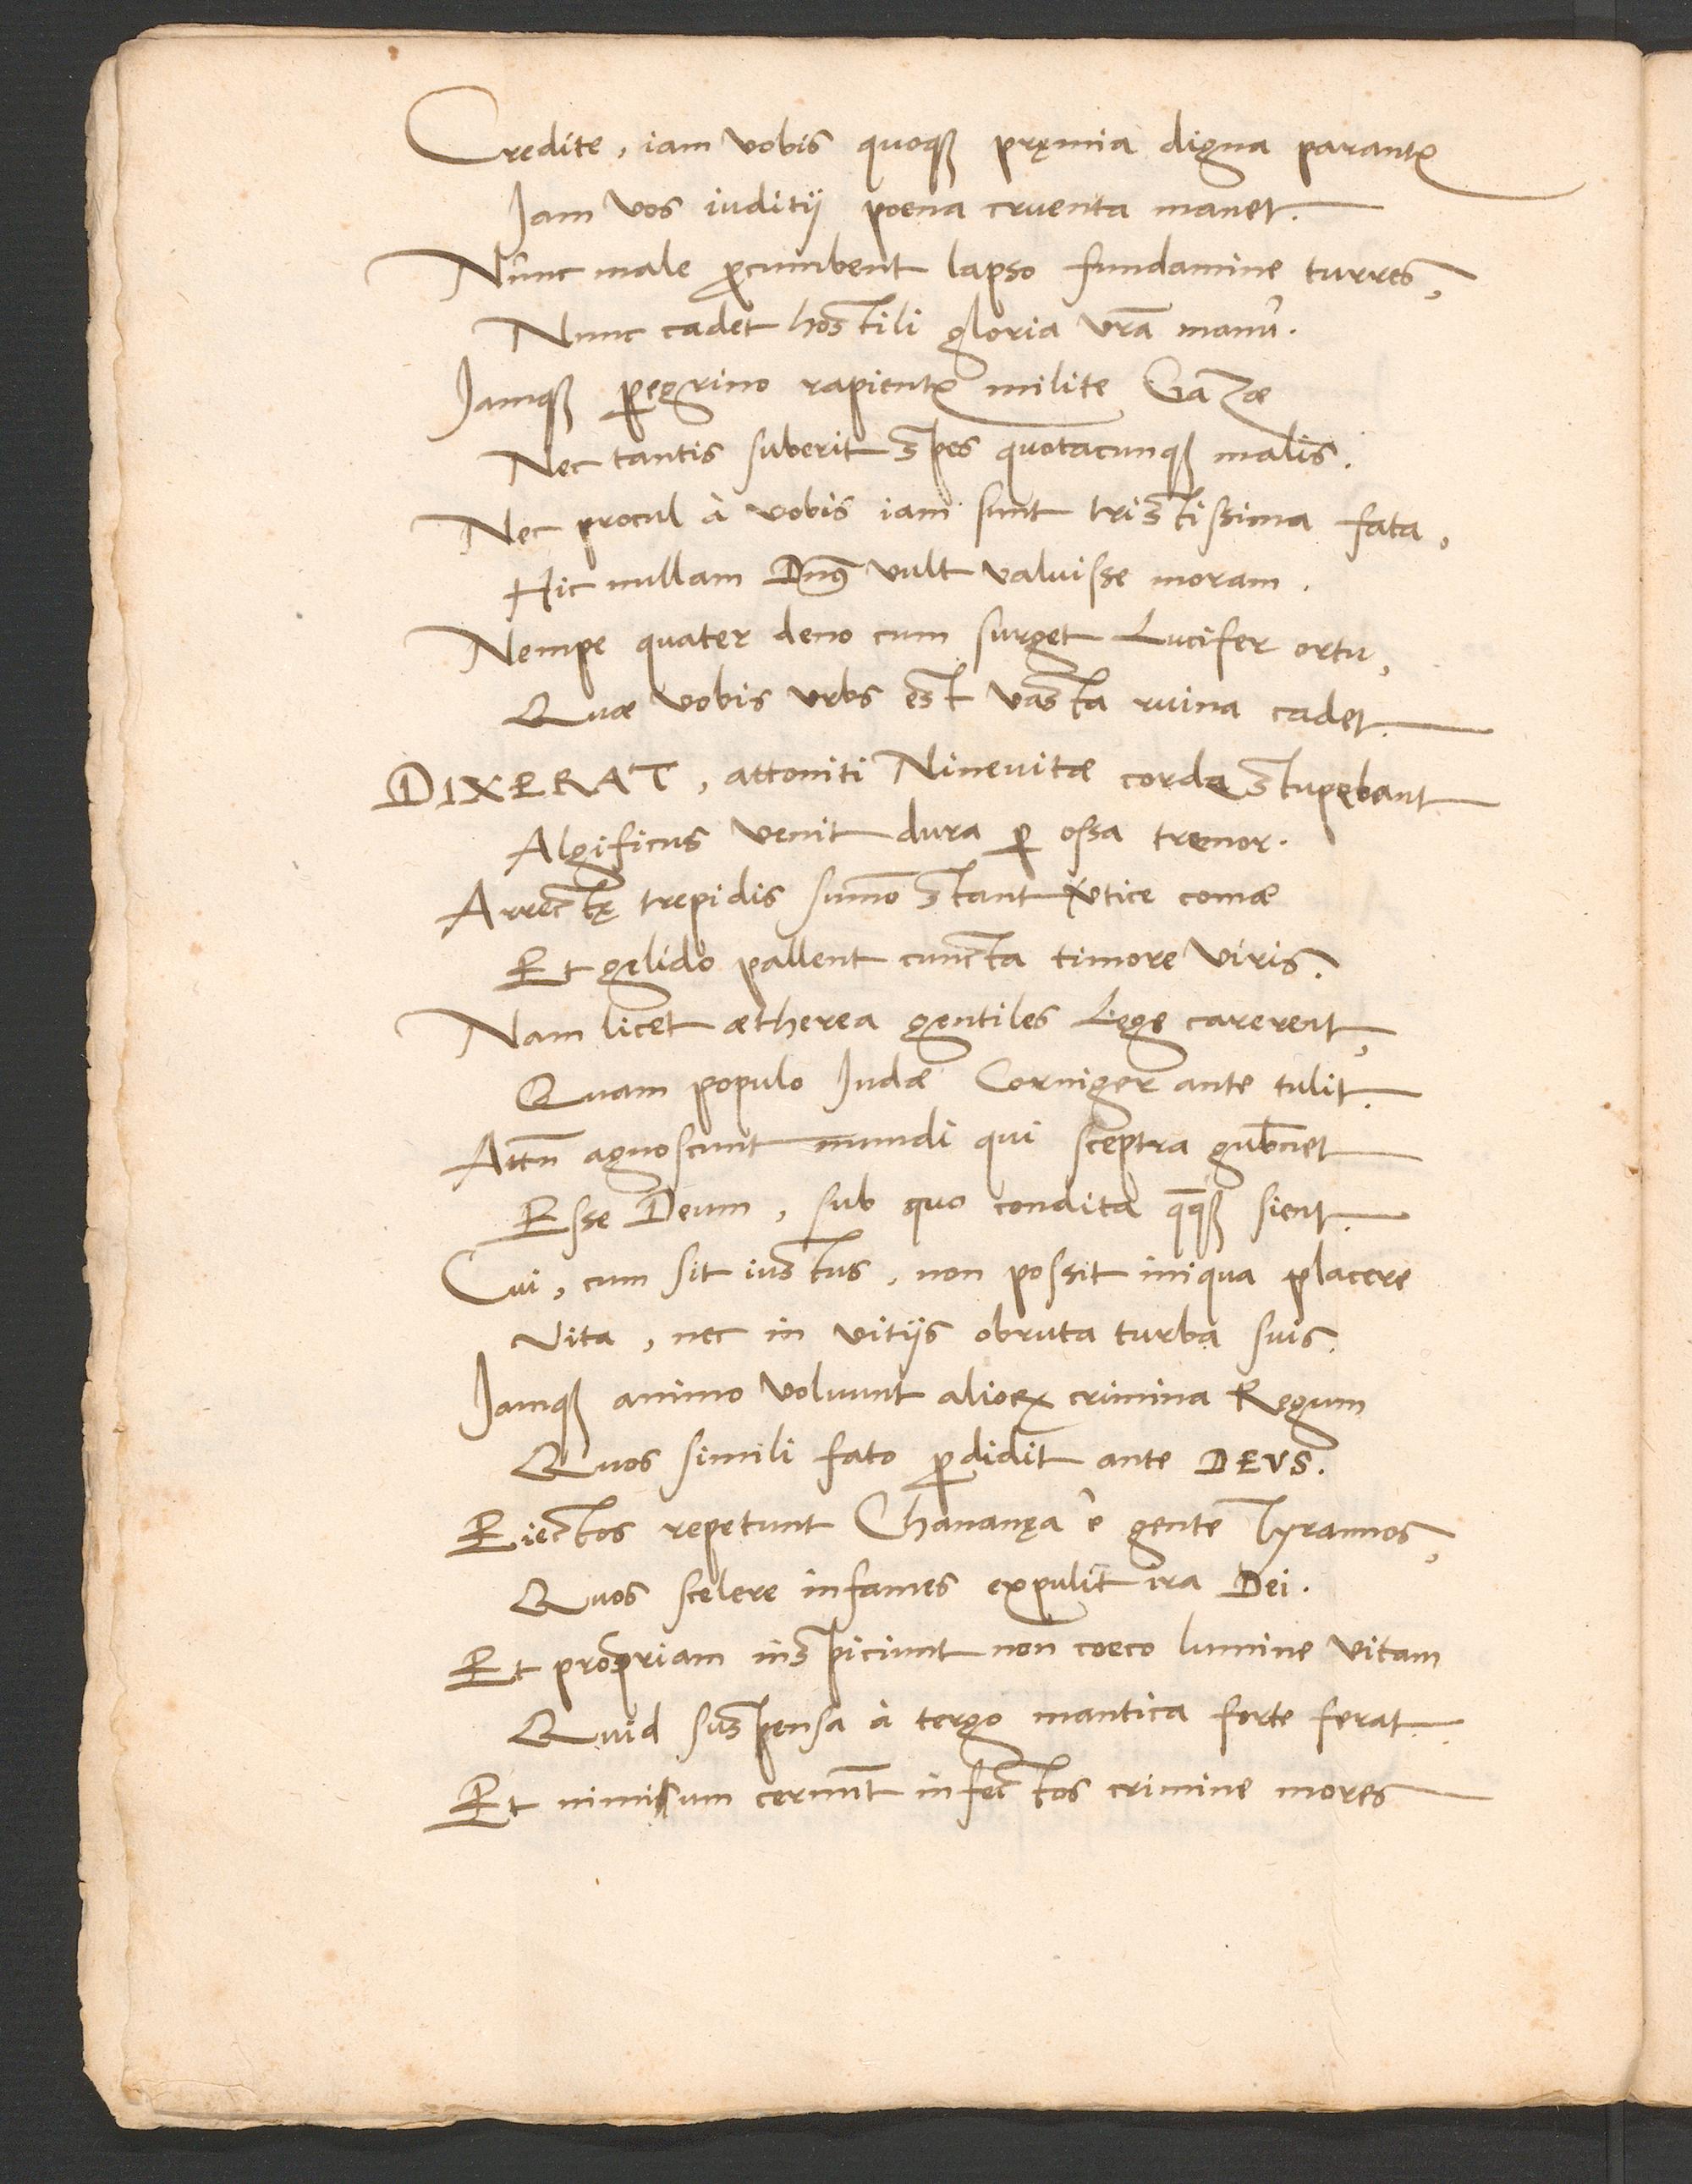 Credite, iam vobis quoqꝫ pręmia digna parantꝰ
Iam vos iuditij poena cruenta manet.
Nunc male ꝓcumbent lapso fundamine turres,
Nunc cadet hostili gloria vr̃a manu.
Iamqꝫ ꝑegrino rapientꝰ milite Gazæ
Nec tantis suberit spes quotacunqꝫ malis.
Nec procul à vobis iam sunt tristissima fata,
Hic nullam Dnꝰ vult valuisse moram.
Nempe quater deno cum surget Lucifer ortu,
Quæ vobis vrbs est vasta ruina cadet.
DIXERAT, attoniti Ninevitæ corda stupebant
Algificus venit dura ꝑ ossa tremor.
Arrectę trepidis sum̃o stant v̾tice comæ
Et gelido pallent cuncta timore viris.
Nam licet ætherea gentiles Lege carerent,
Quam populo Iudæ Corniger ante tulit.
Attñ agnoscunt mundi qui sceptra gub̾net
Esse Deum, sub quo condita q̃qꝫ sient.
Cui, cum sit iustus, non possit iniqua placere
Vita, nec in vitijs obruta turba suis.
Iamqꝫ animo voluunt alioꝝ crimina Regum
Quos simili fato ꝑdidit ante DEVS.
Eiectos repetunt Chananęa è gente Tyrannos,
Quos scelere infames expulit ira Dei.
Et propriam inspiciunt non coeco lumine vitam
Quid suspensa à tergo mantica forte ferat.
Et nimium cernũt infectos crimine mores